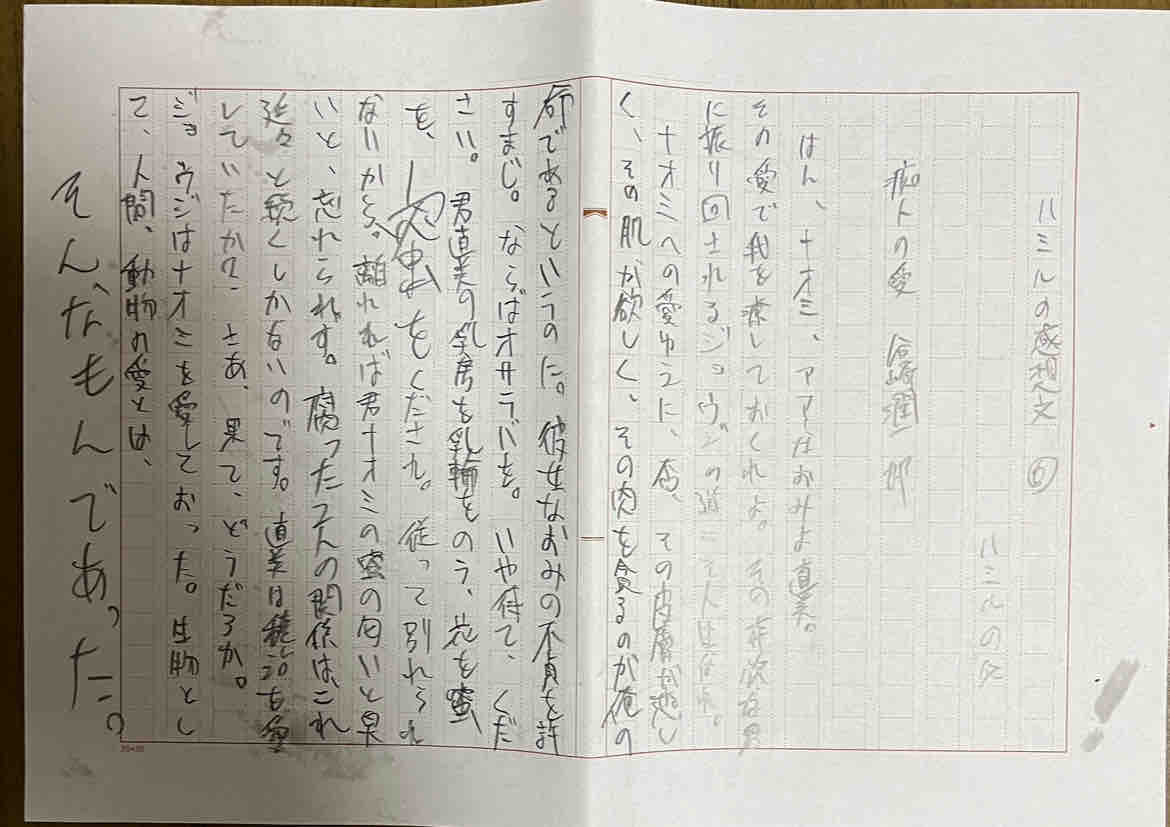 ハミルの感想文 ⑥
ハミルの
痴人の愛 谷崎潤一郎
はん、ナオミ、アアなおみよ直美。
その愛で我を療しておくれよ。その
に振り回されるジョウジの道こそ人生なり。
ナオミへの愛ゆうに、否、その皮膚が恋し
く、その肌が欲しく、その肉を貪るのが俺の
命であるというのに。彼女なおみの不貞を許
すまじ。ならばオサラバを。いや待て、くだ
さい。君直美の乳房を乳輪をのう、花を蜜
を、肉をくだされ。従って別れられ
ないから。離れれば君ナオミの蜜の匂いと臭
いと、忘れられず。腐った2人の関係はこれ
延々と続くしかないのです。直美は譲治を愛
していたか?さあ、果て、どうだろか。
ジョウジはナオミを愛しておった。生物とし
て、人間、動物の愛とは、
そんなもんであった。
20×20